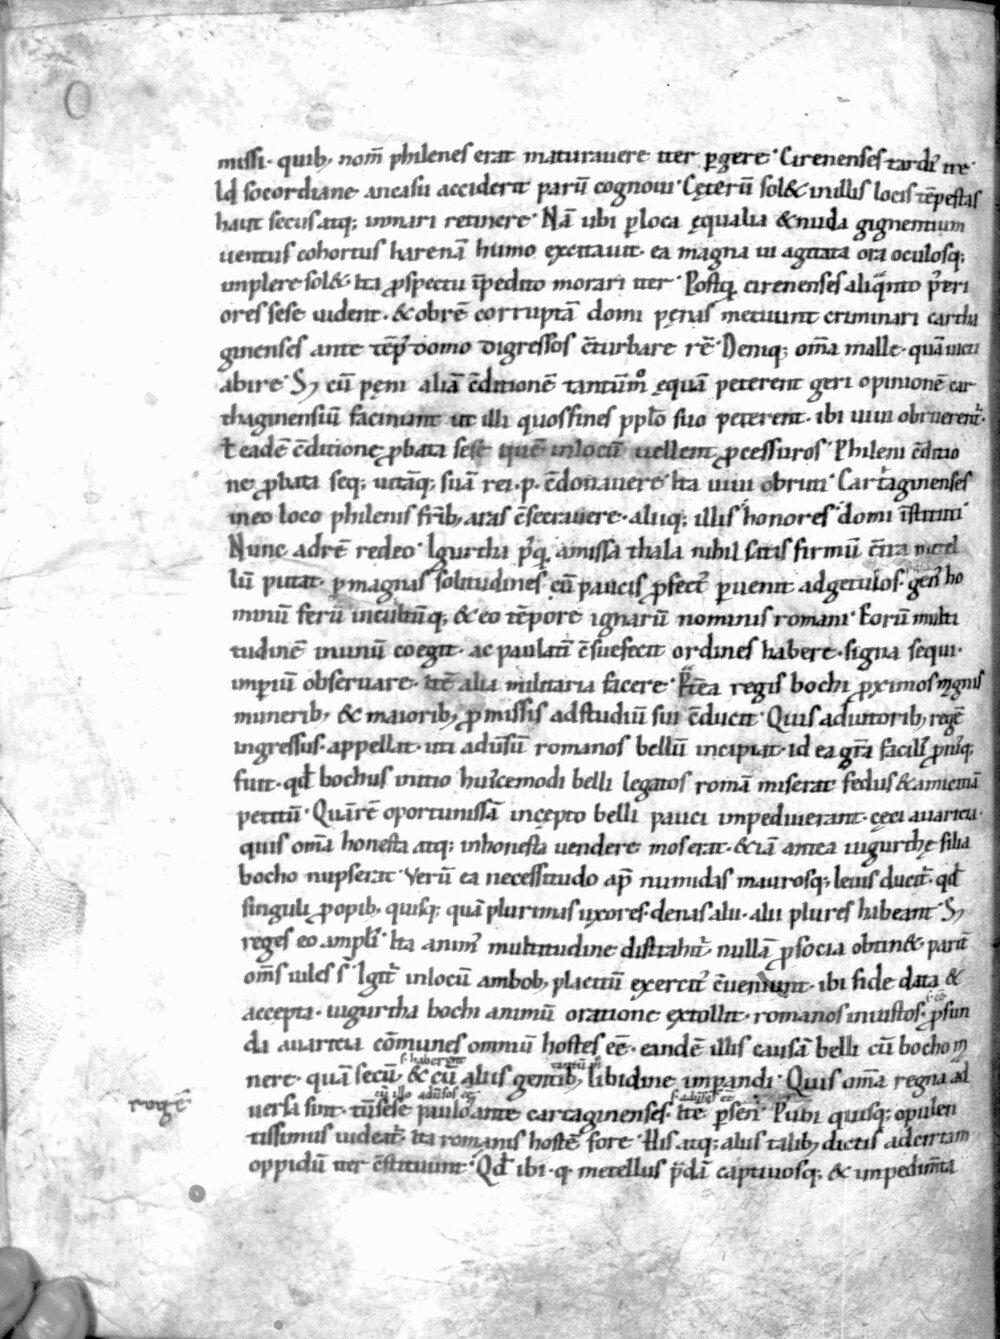 missi· quib; nom̄ philenes erat maturauere iter ꝑgere· Cirenenses tardiꝰ ire·
Id socordiane ancasu acciderit parū cognoui· Cęterū sol& inillis locis tēpestas
haut secus atq; inmari retinere· Nā ubi ꝑloca ęqualia & nuda gignentium
uentus cohortus harenā humo excitauit· ea magna ui agitata ora oculosq;
implere sol&· Ita ꝓspectu īpedito morari iter· Postq̄ cirenenses aliqᵃnto pͥeri
ores sese uident· & obrē corruptā domi pęnas metuunt criminari cartha
ginenses ante tēpꝰ domo digressos c̄turbare rē· Deniq; om̄a malle· quā uicti
abire· S; cū pęni aliā c̄ditionē tantūm̊ ęquā peterent geri opinionē car
thaginensiū faciunt ut illi quos fines pplo̅ suo peterent· ibi uiui obruerent̄·
ł eadē c̄ditione ꝓbata sese quē inlocū uellent ꝓcessuros· Phileni c̄ditio
ne ꝓbata seq; uitāq; suā rei·p· c̄donauere· Ita uiui obruti· Cartaginenses
ineo loco philenis fr̄ib; aras c̄secrauere· aliiq; illis honores domi īstituti·
Nunc adrē redeo· Igurtha pͦq̄ amissa thala nihil satis firmū c̄tra metel
lū putat· ꝑ magnas solitudines cū paucis ꝓfectꝰ ꝑuenit adgetulos· genꝰ ho
minū ferū incultūq; & eo tēpore ignarū nominis romani· Eorū multi
tudinē inunū coegit· ac paulatī c̄suefecit ordines habere· signa sequi·
imꝑiū obseruare· itē alia militaria facere· Pͬtea regis bochi ꝓximos mgnis
munerib; & maiorib; ꝓmissis adstudiū sui c̄ducit· Quis adiutorib; regē
ingressus· appellat· uti aduͣsū romanos bellū incipiat· id ea grā faciliꝰ ꝓniꝰq;
fuit· qđ bochus initio huiꝰcemodi belli legatos romā miserat fedus & amicitiā
petitū· Quārē oportunissā incępto belli pauci impedierant· cęci auaritia·
quis om̄a honesta atq; inhonesta uendere moserat· &iā antea iugurthę filia
bocho nupserat· Verū ea necessitudo ap̄ numidas maurosq; leuis ducit̄· qđ
singuli ꝓopib; quisq; quā plurimas uxores· denas alii· alii plures habeant· S;
reges eo ampliꝰ· Ita animꝰ multitudine distrahit̄· nullā ꝓsocia obtin& parit̄
om̄s uiles s̄t· Igit̄ inlocū ambob; placitū exercitꝰ c̄ueniunt· ibi fide data &
accepta· iugurtha bochi animū oratione extollit· romanos iniustos· ꝓfun
da auaricia cōmunes omniū hostes eē· eandē illis causā belli cū bocho
nere· quā secū· & cū aliis gentib; libidine imꝑandi· Quis om̄a regna ad
uersa sint· tū sese paulo ante cartaginenses· itē ꝑsen· P̄ubi quisq; opulen
tissimus uideat̄· Ita romanis hostē fore· His atq; aliis talib; dictis adcirtam
oppidū iter c̄stituunt· Qđ ibi·q· metellus p̄dā captiuosq; & impedim̄ta